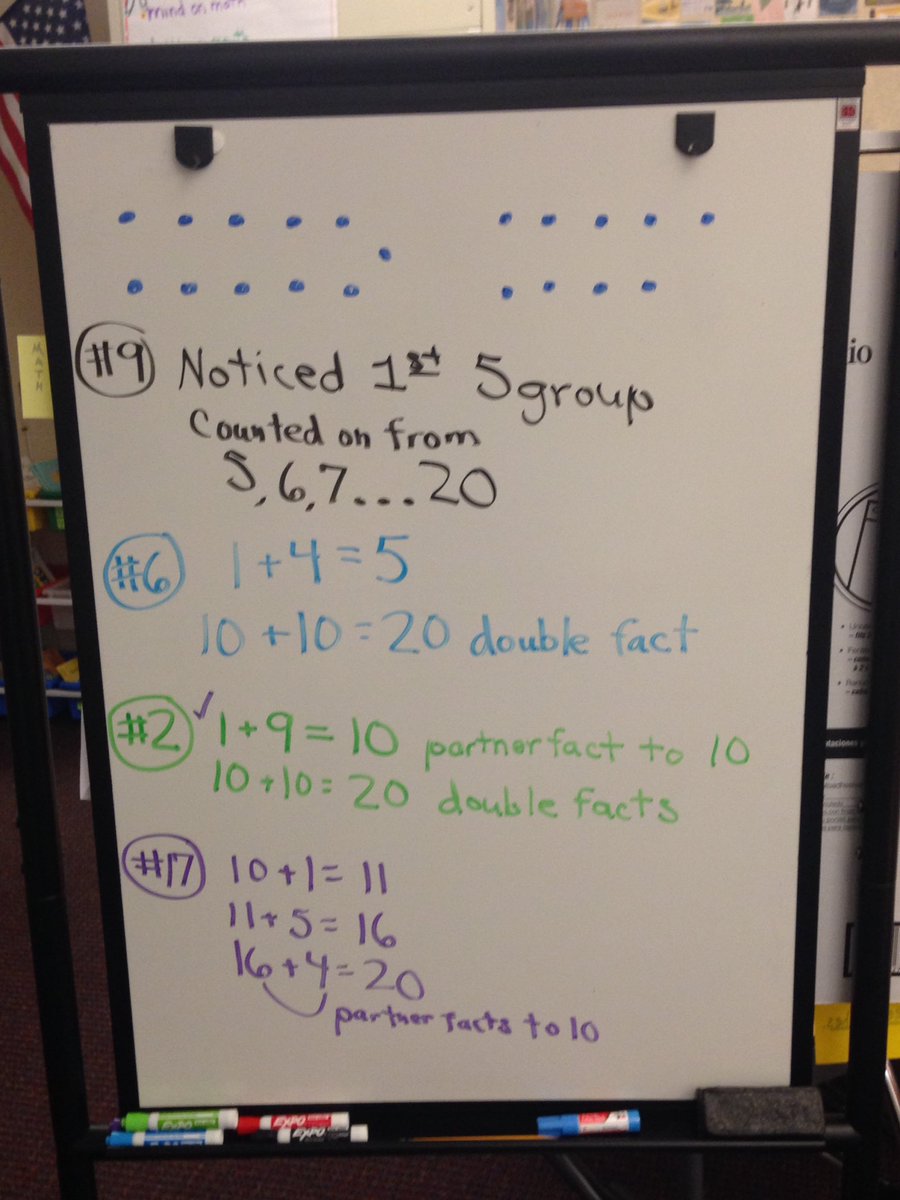 mind on math
MATH
#9 Noticed 1st 5 group
Counted on from
5, 6, 7 ... 20
#6 1 + 4 = 5
10 + 10 = 20 double fact
#2 ✓ 1 + 9 = 10 partner fact to 10
10 + 10 = 20 double facts
#17 10 + 1 = 11
11 + 5 = 16
16 + 4 = 20
partner facts to 10
io
EXPO
EXPO